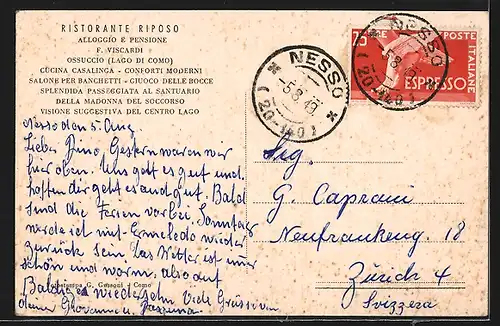 RISTORANTE RIPOSO
ALLOGGIO E PENSIONE
F. VISCARDI
OSSUCCIO (LAGO DI COMO)
CUCINA CASALINGA - CONFORTI MODERNI
SALONE PER BANCHETTI - GIUOCO DELLE BOCCE
SPLENDIDA PASSEGGIATA AL SANTUARIO
DELLA MADONNA DEL SOCCORSO
VISIONE SUGGESTIVA DEL CENTRO LAGO
Nesso den 5. Aug.
Lieber Dino, Gestern waren wir
hier oben. Uns geht es gut und
hoffen dir geht es auch gut. Bald
sind die Ferien vorbei. Sonntag
werde ich mit Ermelodo wieder
zurück sein. Das Wetter ist
schön und warm, also auf
Baldiges wiedersehn. Viele Grüsse von
deiner Giovanna u.
G. - Como
NESSO
5.8.49
(20-140)
NESSO
(20-140)
75 LIRE
ESPRESSO
ITALIANE
Sig.
G. Caprani
Neufrankeng. 18
Zürich 4
Svizzera